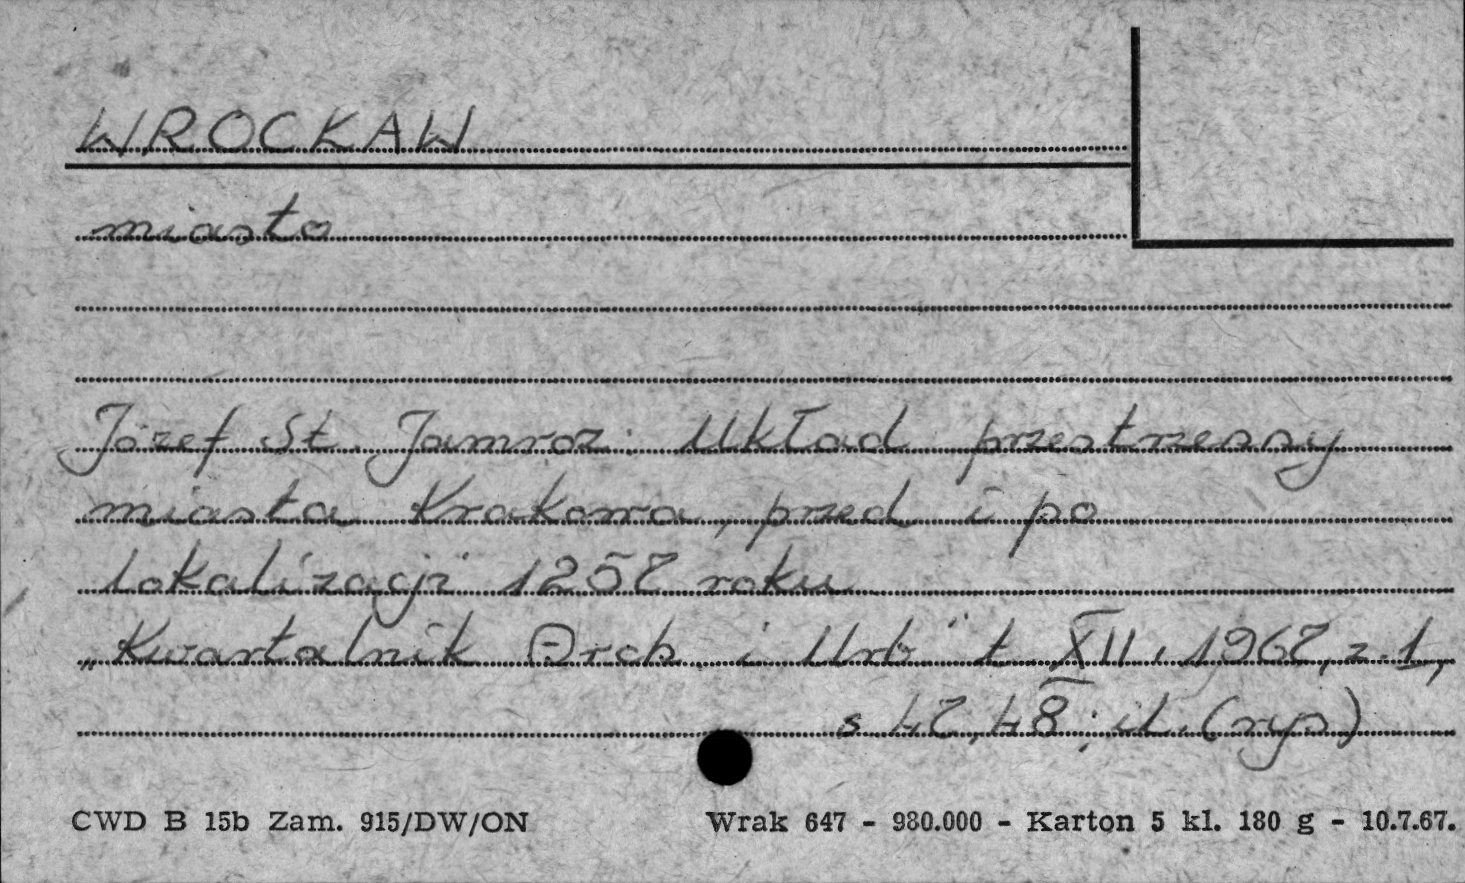 WROCŁAW
miasto
Józef St. Jamroz: Układ przestrzenny
miasta Krakowa, przed i po
lokalizacji 1257 roku
„Kwartalnik Arch. i Urb" t. XII, 1967, z.1,
s 47,48; il. (rys)
CWD B 15b Zam. 915/DW/ON Wrak 647 - 980.000 - Karton 5 kl. 180 g - 10.7.67.